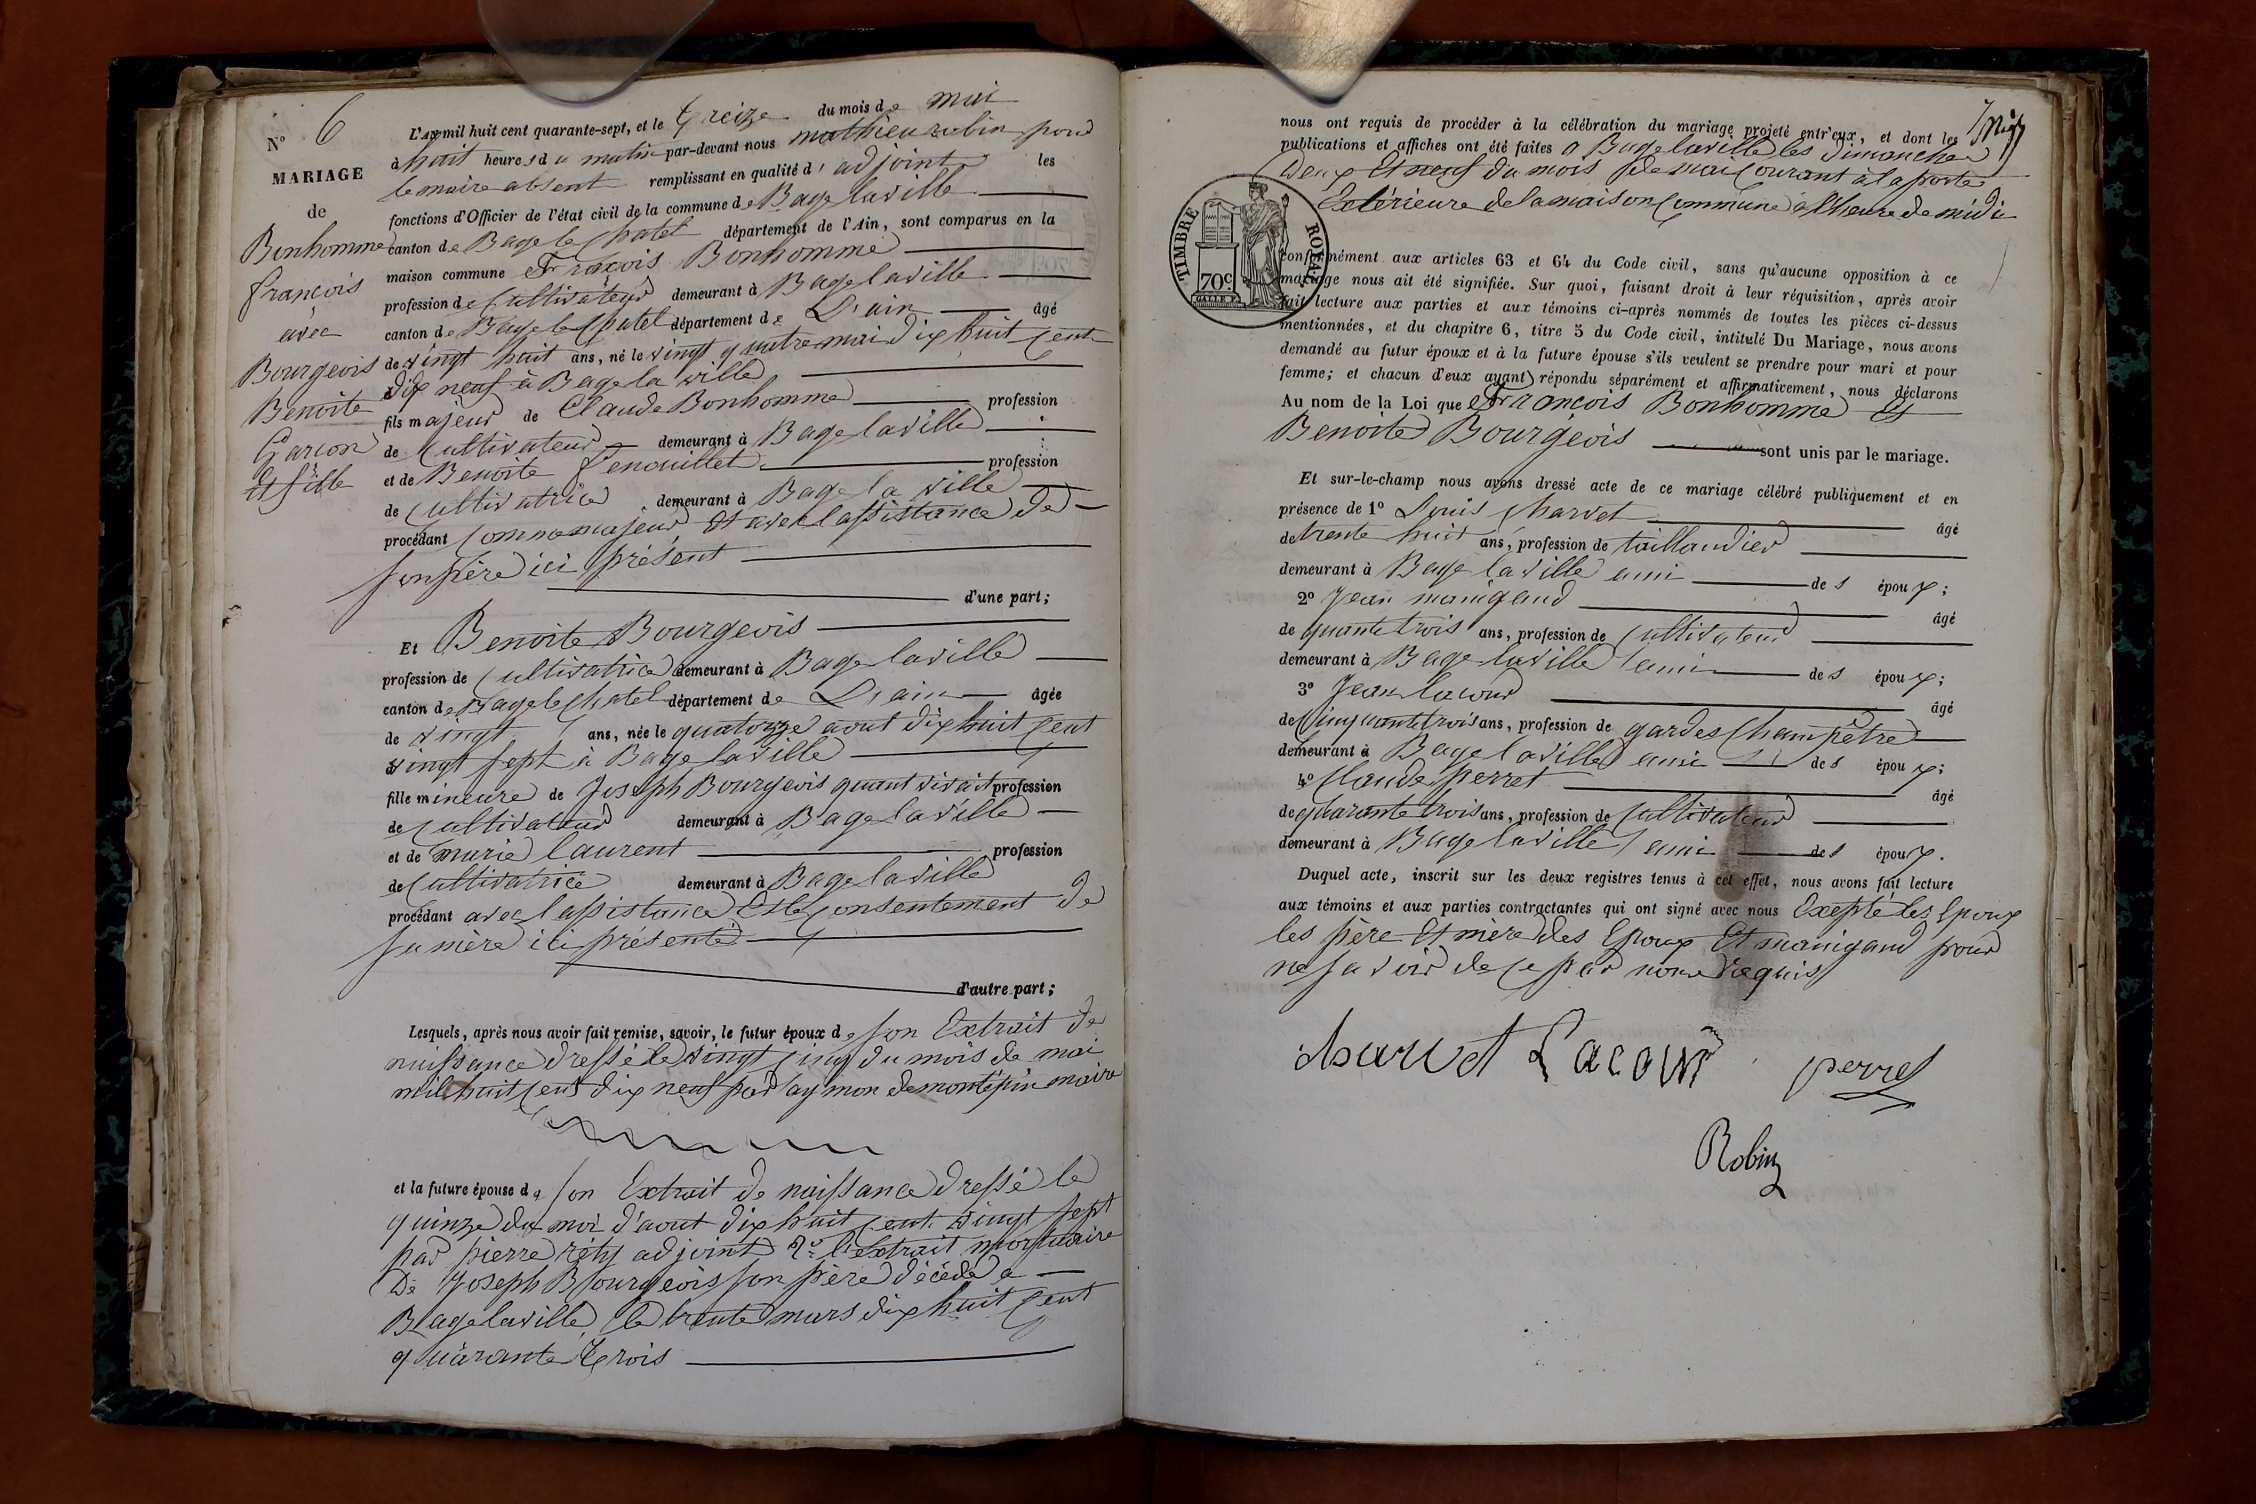 N° 6
MARIAGE
de
Bonhomme
françois
avec
Bourgeois
Benoite
Garcon
et fille
L'an mil huit cent quarante-sept, et le treize du mois de mai
à huit heures du matin par-devant nous mathieu robin pour
le maire absent remplissant en qualité d'adjoint les
fonctions d'Officier de l'état civil de la commune de Bage laville
canton de Bage le chatel département de l'Ain, sont comparus en la
maison commune François Bonhomme
profession de cultivateur demeurant à Bage laville
canton de Bage le chatel département de L'ain âgé
de vingt huit ans, né le vingt quatre mai dix huit cent
dix neuf à Bage la ville
fils majeur de Claude Bonhomme profession
de cultivateur demeurant à Bage laville
et de Benoite Penouillet profession
de cultivatrice demeurant à Bage la ville
procédant comme majeur et avec lassistance de
son père ici présent
d'une part;
Et Benoite Bourgeois
profession de cultivatrice demeurant à Bage laville
canton de Bage le chatel département de L'ain âgée
de vingt ans, née le quatorze aout dix huit cent
vingt sept à Bage laville
fille mineure de Joseph Bourgeois quant vivait profession
de cultivateur demeurant à Bage laville
et de marie laurent profession
de cultivatrice demeurant à Bage laville
procédant avec lassistance et le consentement de
sa mère ici présente
d'autre part;
Lesquels, après nous avoir fait remise, savoir, le futur époux de son Extrait de
naissance dressé le vingt cinq du mois de mai
mil huit cent dix neuf par aymon demontépin maire
et la future épouse de son Extrait de naissance dressé le
quinze du moi d'aout dix huit cent vingt sept
par pierre réty adjoint 2° l'Extrait mortuaire
De Joseph Bourgeois son père décédé a
Bage laville le trente mars dix huit cent
quarante trois
nous ont requis de procéder à la célébration du mariage projeté entr'eux, et dont les
publications et affiches ont été faites a Bage laville les dimanche
deux et neuf du mois de mai courant à la porte
Extérieure de la maison commune à l'heure de midi
TIMBRE ROYAL
70c
conformément aux articles 63 et 64 du Code civil, sans qu'aucune opposition à ce
mariage nous ait été signifiée. Sur quoi, faisant droit à leur réquisition, après avoir
fait lecture aux parties et aux témoins ci-après nommés de toutes les pièces ci-dessus
mentionnées, et du chapitre 6, titre 5 du Code civil, intitulé Du Mariage, nous avons
demandé au futur époux et à la future épouse s'ils veulent se prendre pour mari et pour
femme; et chacun d'eux ayant répondu séparément et affirmativement, nous déclarons
Au nom de la Loi que François Bonhomme et
Benoite Bourgeois sont unis par le mariage.
Et sur-le-champ nous avons dressé acte de ce mariage célébré publiquement et en
présence de 1° Louis charvet âgé
de trente huit ans, profession de taillandier
demeurant à Bage laville ami des époux;
2° Jean manigand âgé
de quante trois ans, profession de cultivateur
demeurant à Bage laville ami des époux;
3° Jean lacour âgé
de cinquante trois ans, profession de gardes champêtre
demeurant à Bage laville ami des époux;
4° Claude perret âgé
de quarante trois ans, profession de cultivateur
demeurant à Bage laville ami des époux.
Duquel acte, inscrit sur les deux registres tenus à cet effet, nous avons fait lecture
aux témoins et aux parties contractantes qui ont signé avec nous Exepté les Epoux
les père et mère des Epoux et manigand pour
ne savoir de ce par nous requis
charvet Lacour perret
Robin